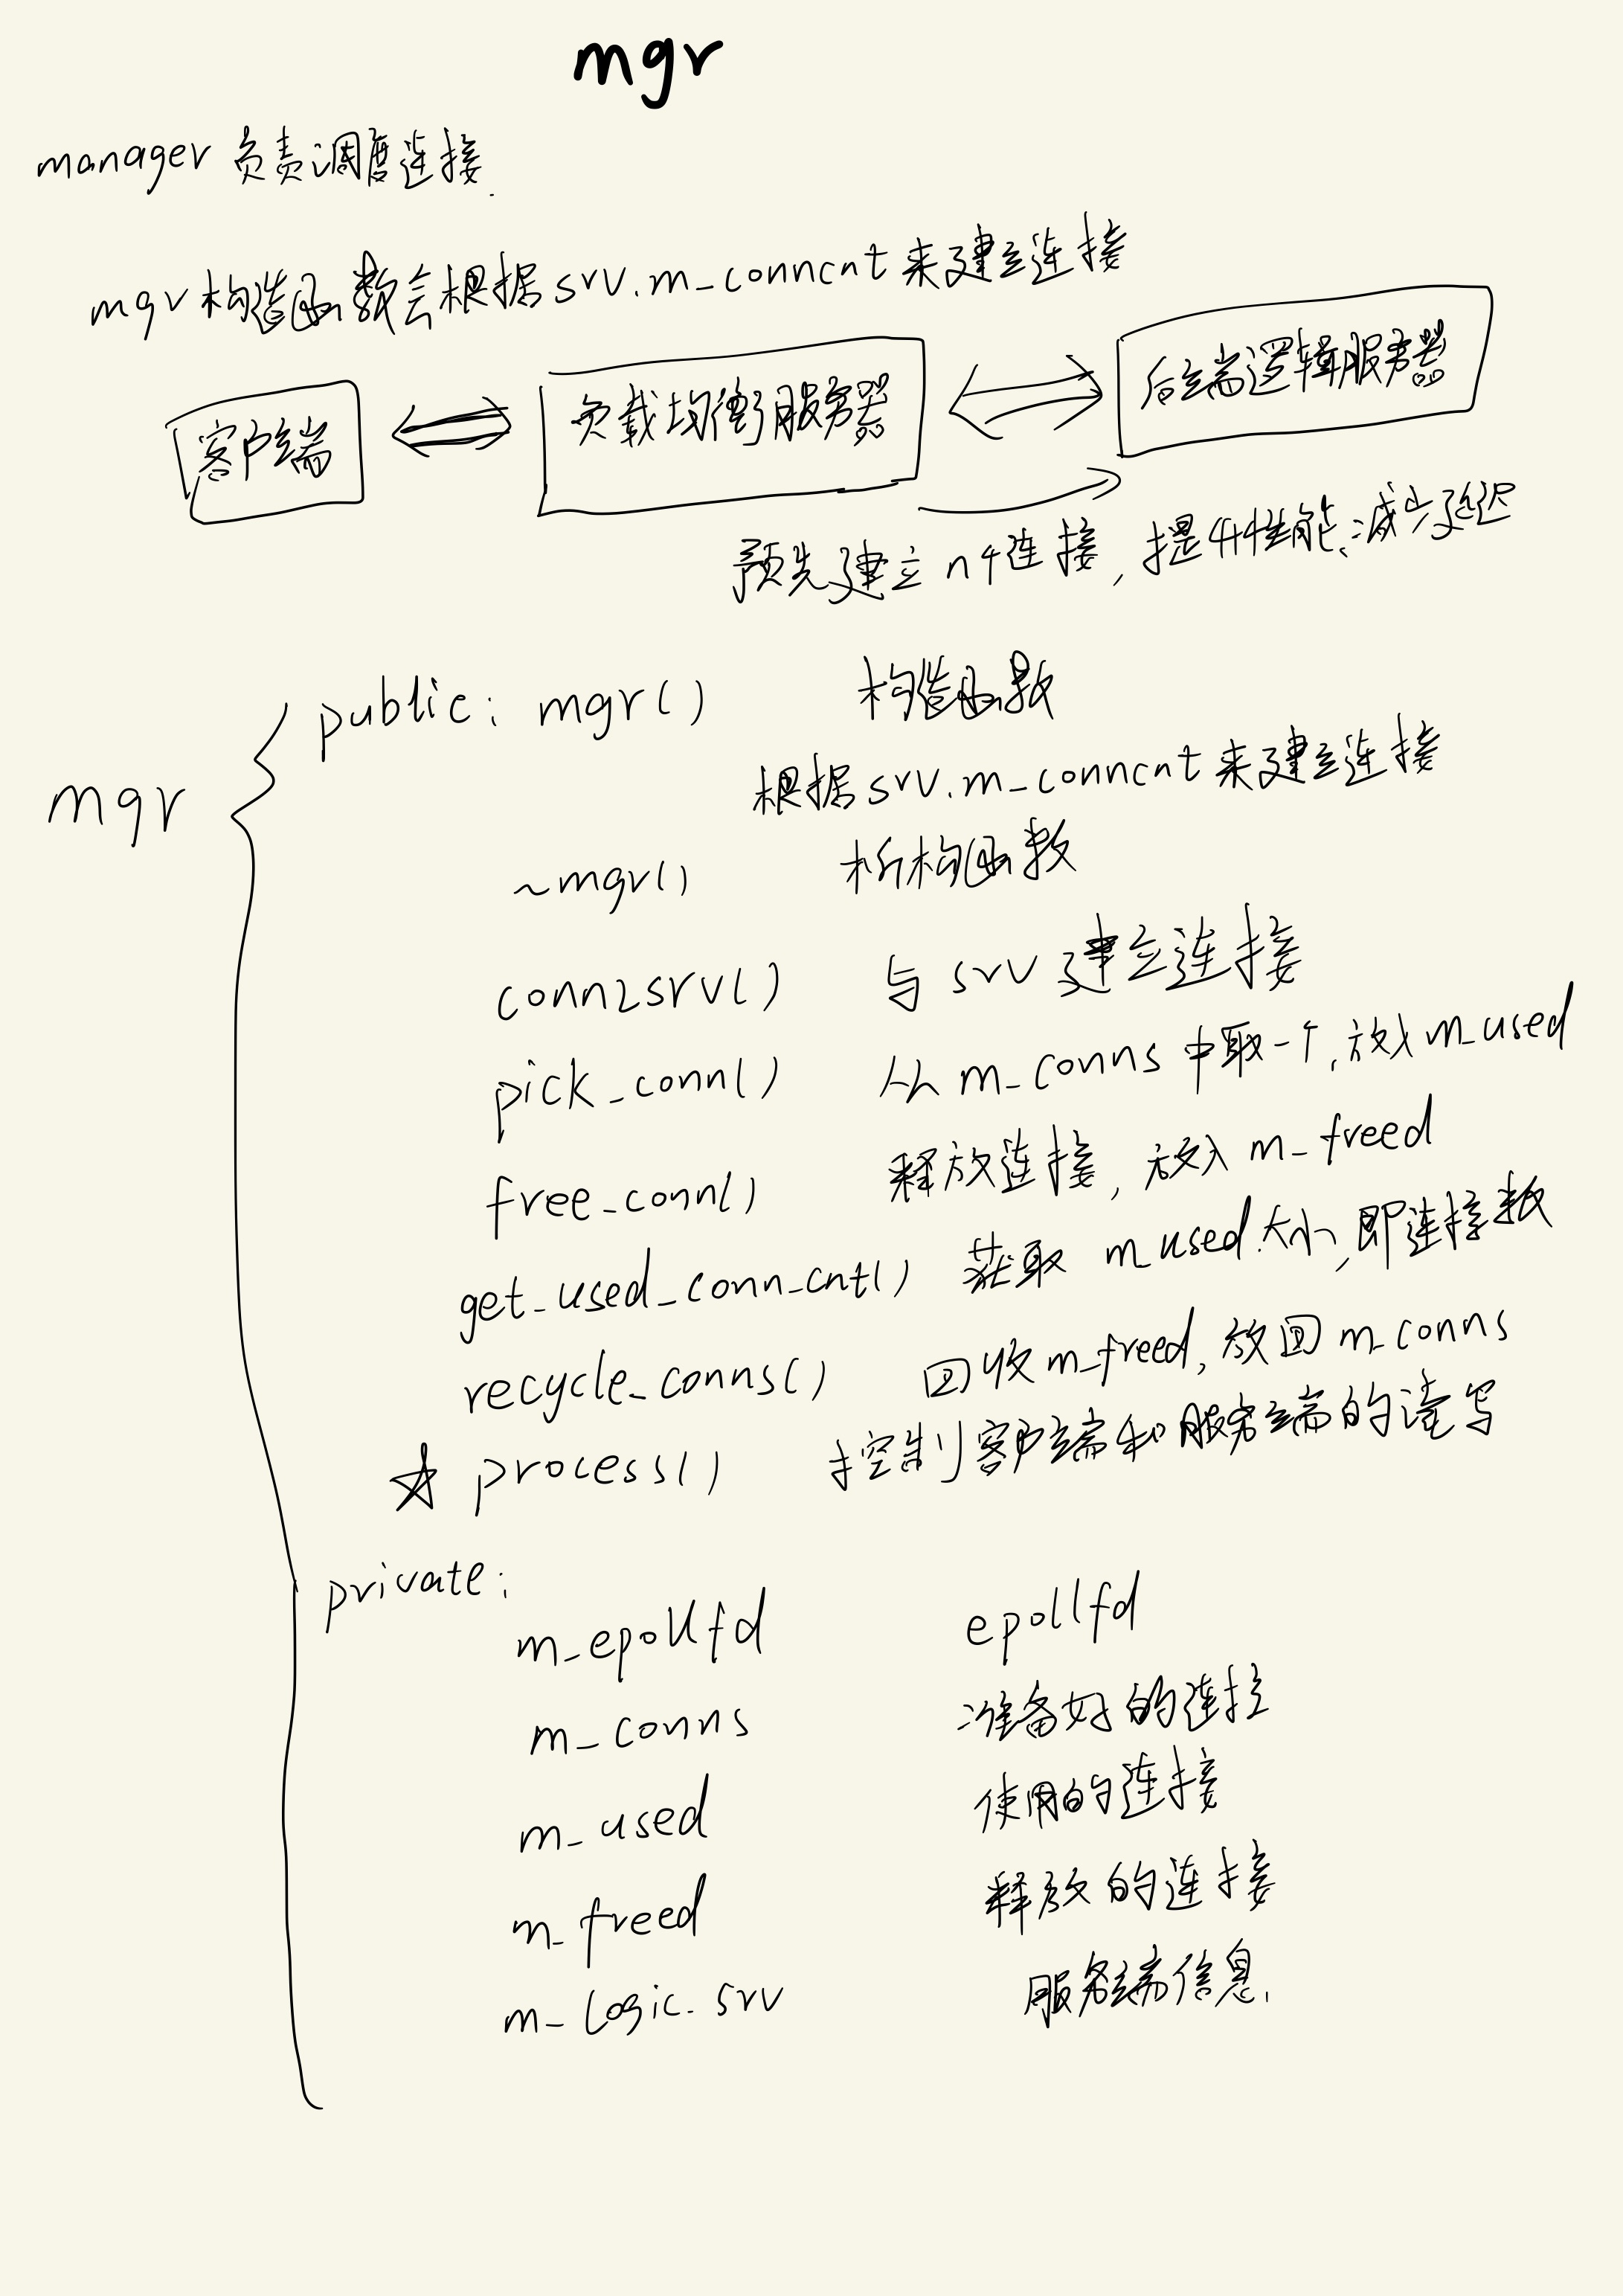 mgr
manager 负责调度连接.
mgr构造函数会根据srv.m_conncnt来建立连接
客户端 负载均衡服务器 后端逻辑服务器
预先建立n个连接,提升性能、减少延迟
mgr
public: mgr() 构造函数
根据srv.m_conncnt来建立连接
~mgr() 析构函数
conn2srv() 与srv建立连接
pick_conn() 从m_conns中取一个,放入m_used
free_conn() 释放连接,放入m_freed
get_used_conn_cnt() 获取 m_used大小,即连接数
recycle_conns() 回收m_freed,放回m_conns
☆ process() 控制客户端和服务端的读写
private:
m_epollfd epollfd
m_conns 准备好的连接
m_used 使用的连接
m_freed 释放的连接
m_logic_srv 服务端信息.